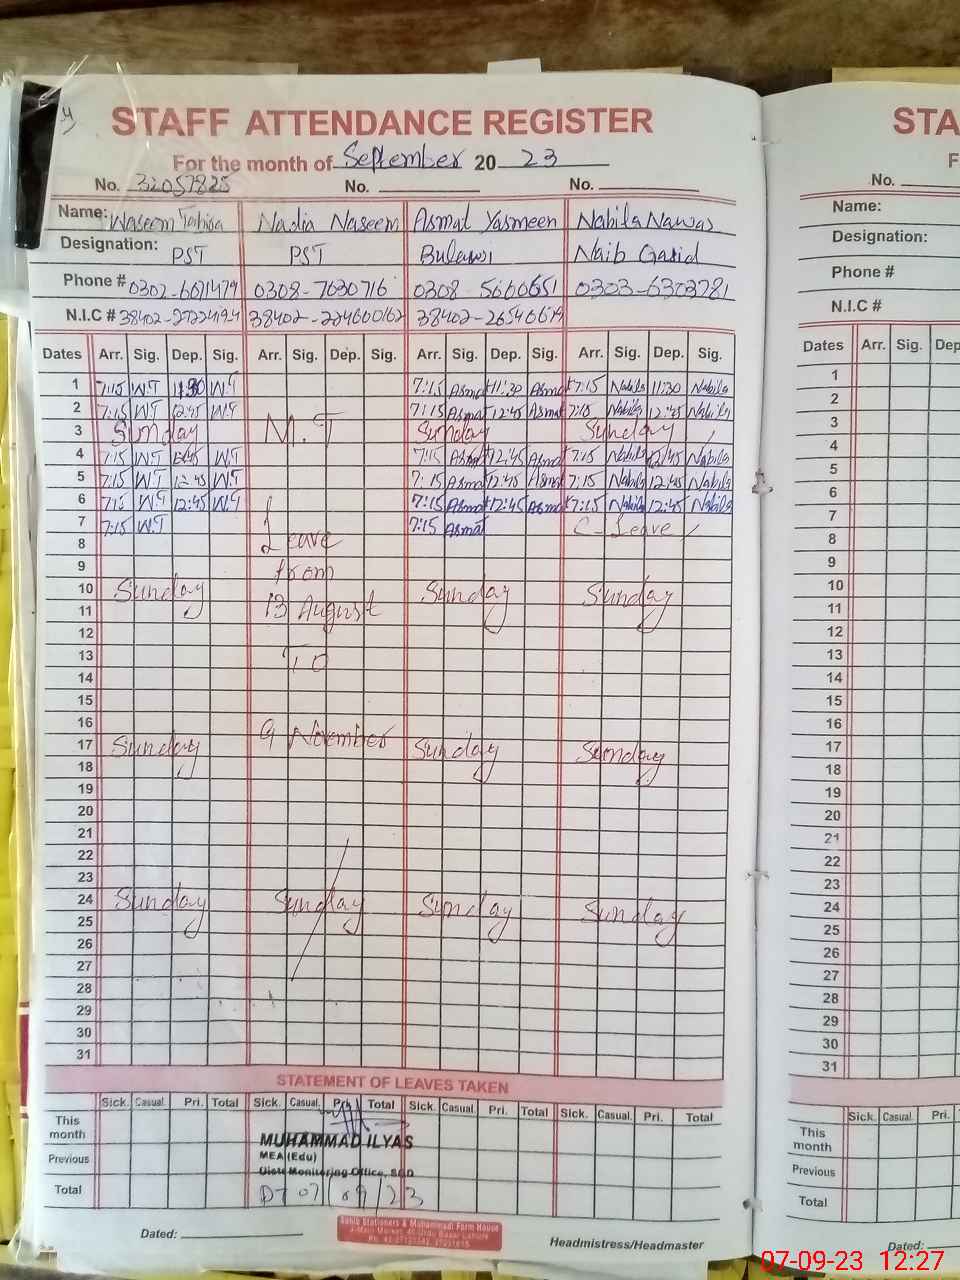 STAFF ATTENDANCE REGISTER
For the month of September 20 23
No. 32057825 No. No.
Name: Waseem Nadia Naseem Asmat Yasmeen Nabila Nawas
Designation: PST PST Naib Qasid
Phone # 0302-6021479 0308-7030716 0308-5660651 0303-6303781
N.I.C # 38402- 38402-
Dates Arr. Sig. Dep. Sig. Arr. Sig. Dep. Sig. Arr. Sig. Dep. Sig. Arr. Sig. Dep. Sig.
1 7:15 W.T W.T 7:15 Asmat 11:30 Asmat 7:15 Nabila 11:30 Nabila
2 7:15 W.T 12:45 W.T 7:15 Asmat 12:45 Asmat 7:15 Nabila 12:45 Nabila
3 Sunday M.T Sunday Sunday
4 7:15 W.T 12:45 W.T 7:15 Asmat 12:45 Asmat 7:15 Nabila 12:45 Nabila
5 7:15 W.T 12:45 W.T 7:15 Asmat 12:45 Asmat 7:15 Nabila 12:45 Nabila
6 7:15 W.T 12:45 W.T 7:15 Asmat 12:45 Asmat 7:15 Nabila 12:45 Nabila
7 7:15 W.T Leave 7:15 Asmat C-Leave
8
9 from
10 Sunday Sunday Sunday
11 13 August
12
13 TO
14
15
16 9 November
17 Sunday Sunday Sunday
18
19
20
21
22
23
24 Sunday Sunday Sunday Sunday
25
26
27
28
29
30
31
STATEMENT OF LEAVES TAKEN
Sick. Casual. Pri. Total Sick. Casual. Pri. Total Sick. Casual. Pri. Total Sick. Casual. Pri. Total
This month
Previous
Total
MUHAMMAD ILYAS
MEA (Edu)
Monitoring Office, SGD
DT 07/09/23
Dated:
Headmistress/Headmaster
STA
F
No.
Name:
Designation:
Phone #
N.I.C #
Dates Arr. Sig. Dep
1
2
3
4
5
6
7
8
9
10
11
12
13
14
15
16
17
18
19
20
21
22
23
24
25
26
27
28
29
30
31
Sick. Casual. Pri.
This month
Previous
Total
Dated:
07-09-23 12:27